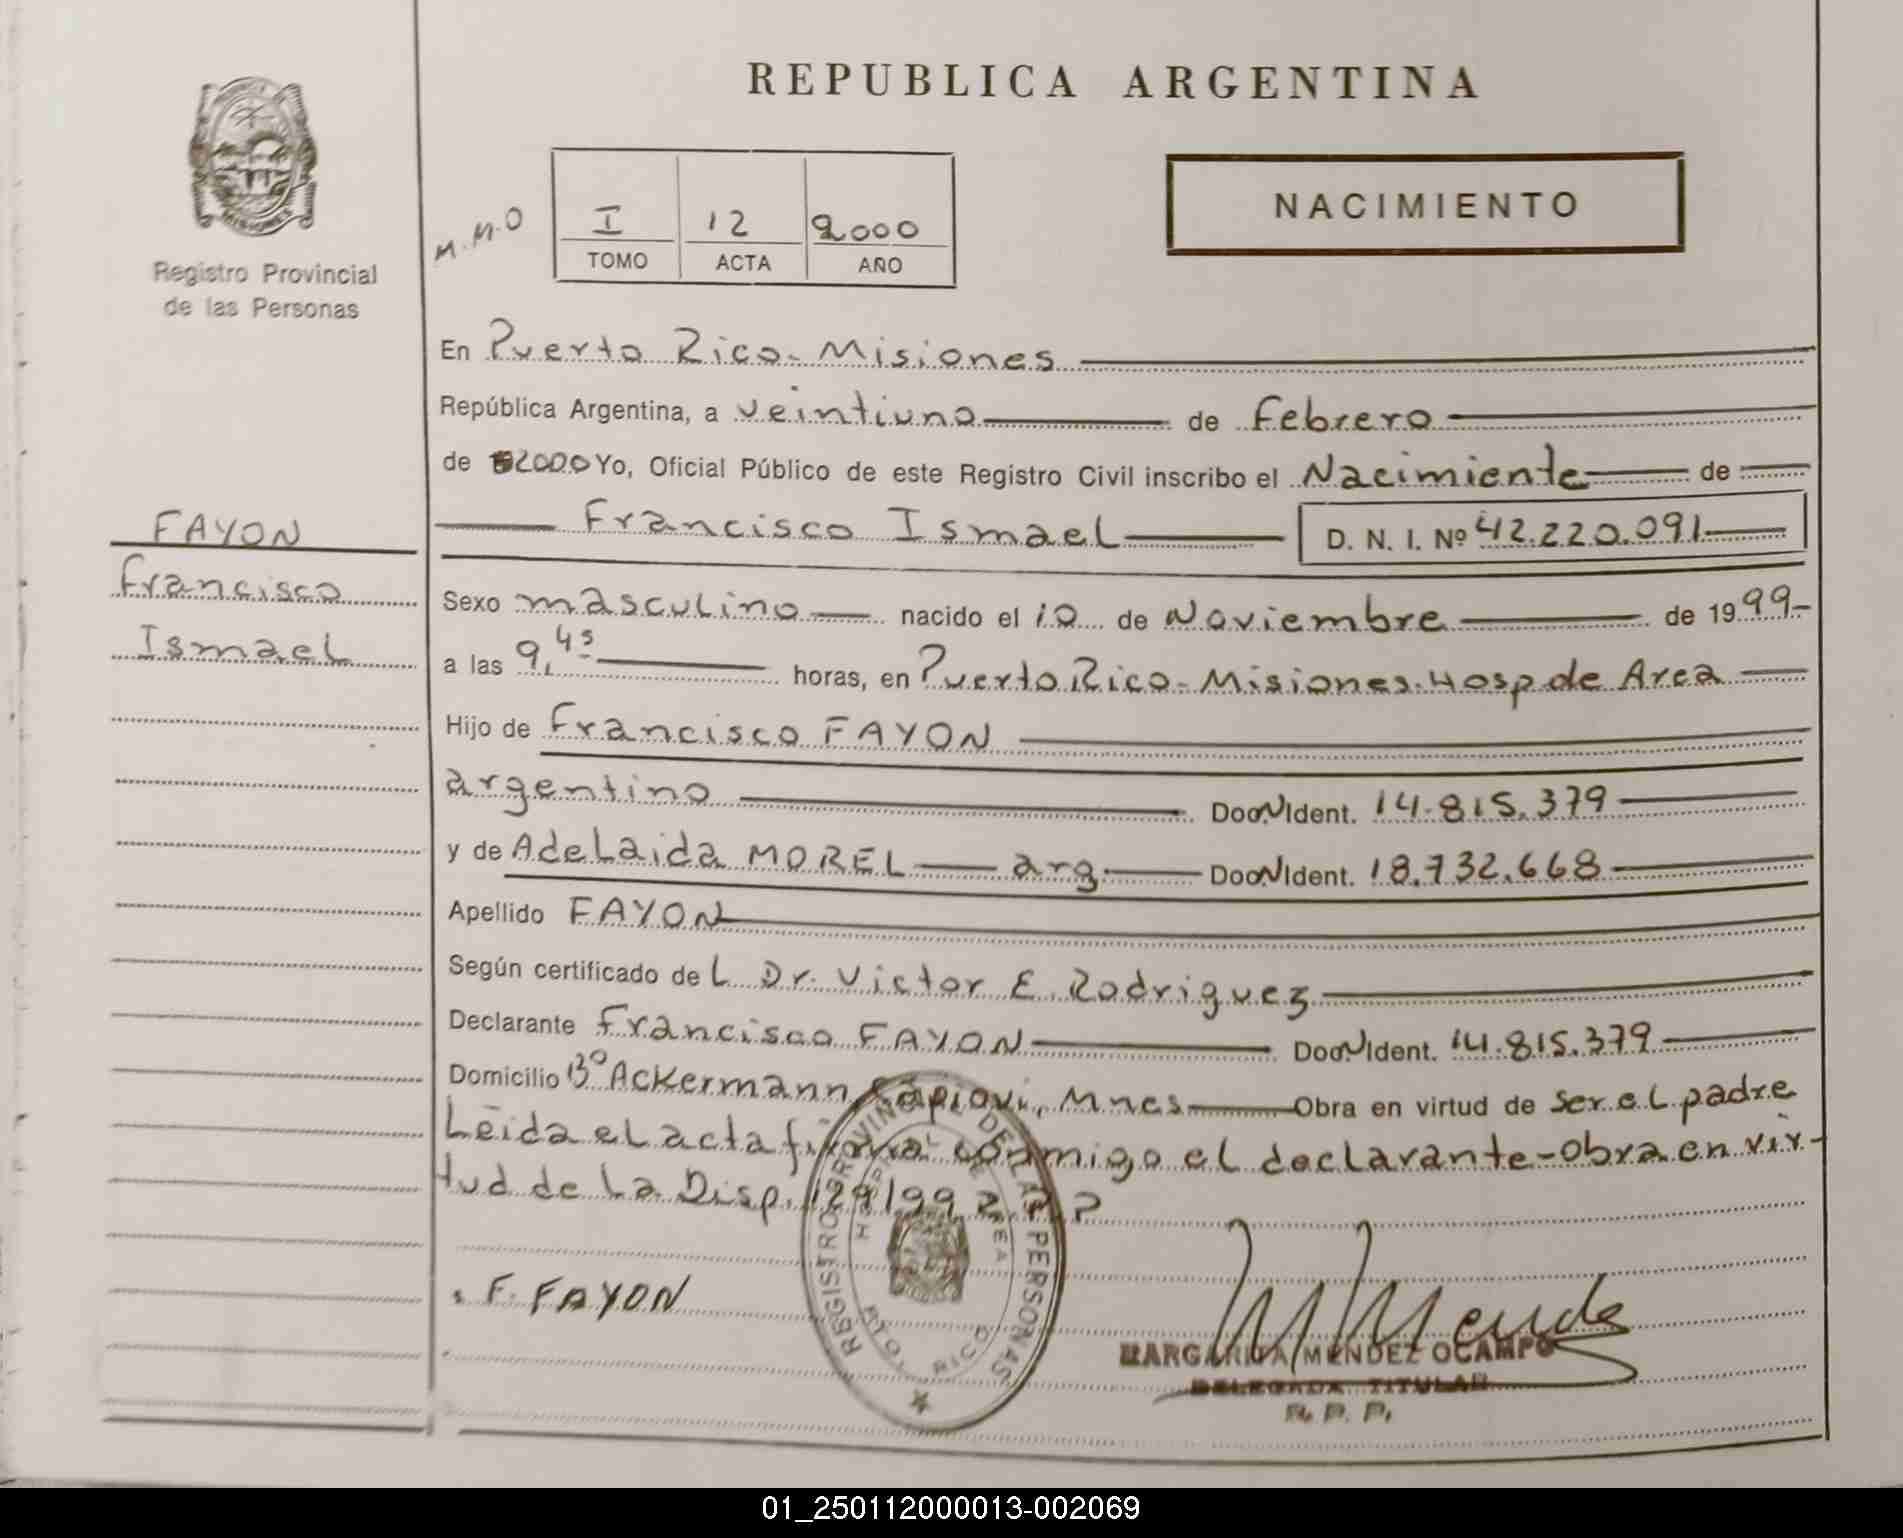 REPUBLICA ARGENTINA
MISIONES
Registro Provincial
de las Personas
M.M.O
I 12 2000
TOMO ACTA AÑO
NACIMIENTO
En Puerto Rico - Misiones
República Argentina, a veintiuno de Febrero
de 2000 Yo, Oficial Público de este Registro Civil inscribo el Nacimiente de
Francisco Ismael D. N. I. Nº 42.220.091
FAYON
Francisco
Ismael
Sexo masculino nacido el 10 de Noviembre de 1999-
a las 9,45 horas, en Puerto Rico - Misiones. Hosp de Area
Hijo de Francisco FAYON
argentino Doc. N Ident. 14.815.379
y de Adelaida MOREL arg. Doc. N Ident. 18.732.668
Apellido FAYON
Según certificado de L Dr. Victor E. Rodriguez
Declarante Francisco FAYON Doc. N Ident. 14.815.379
Domicilio Bº Ackermann, Capiovi, Mnes Obra en virtud de ser el padre
Leida el acta firma conmigo el declarante - Obra en vir-
tud de la Disp. 129/99 R.P.P
F. FAYON
REGISTRO PROVINCIAL DE LAS PERSONAS
HOSPITAL DE AREA
PTO. RICO
M Mende
MARGARITA MENDEZ OCAMPO
DELEGADA TITULAR
R. P. P.
01_250112000013-002069